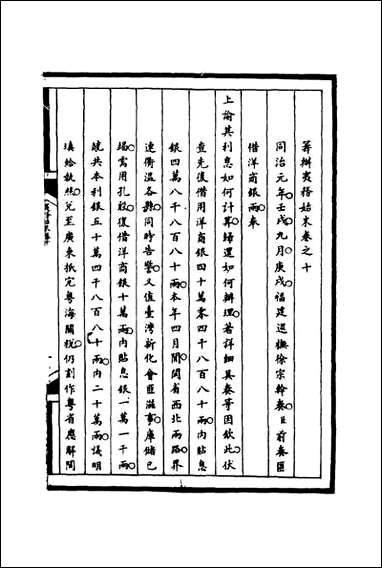 籌辦夷務始末卷之十
同治元年壬戌九月庚戌福建巡撫徐宗幹奏臣前奏匯
借洋商銀兩奉
上諭其利息如何計算歸還如何辦理著詳細具奏等因欽此伏
查先後借用洋商銀四十萬零四千八百八十兩內貼息
銀四萬八千八百八十兩本年四月閒閩省西北兩路界
連衢溫各縣同時告警又值臺灣新化會匪滋事庫儲已
竭需用孔殷復借洋商銀十萬兩內貼息銀一萬一千兩
統共本利銀五十萬四千八百八十兩內二十萬兩議明
填給執照兌至廣東抵完粵海關稅仍劃作粵省應解閩